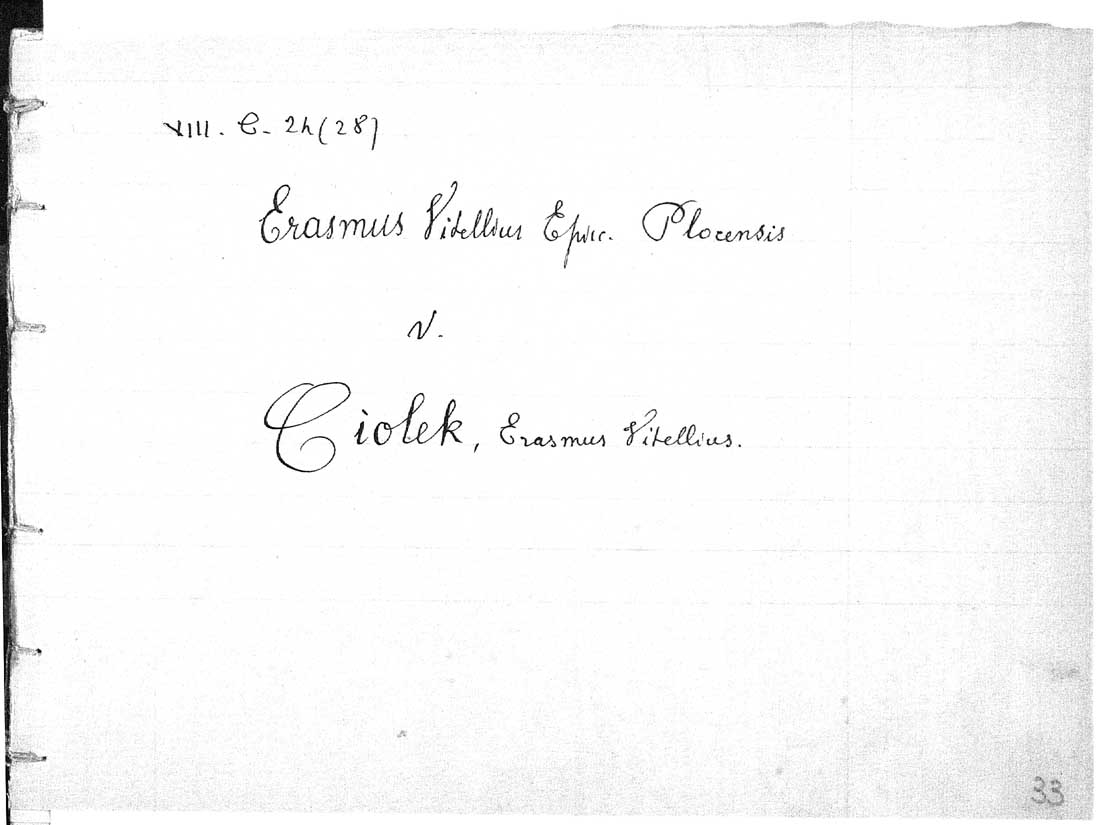 VIII. C. 2h (28)
Erasmus Vitellius Episc. Plocensis
V.
Ciolek, Erasmus Vitellius.
33